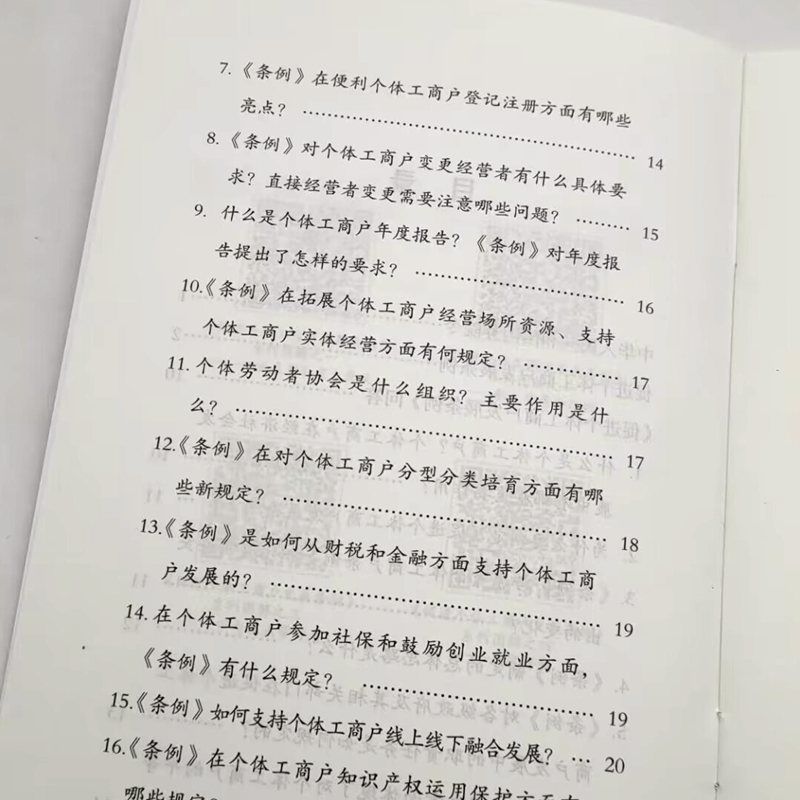 7. 《条例》在便利个体工商户登记注册方面有哪些
亮点? …………………………………………… 14
8. 《条例》对个体工商户变更经营者有什么具体要
求? 直接经营者变更需要注意哪些问题? ……… 15
9. 什么是个体工商户年度报告? 《条例》对年度报
告提出了怎样的要求? ………………………… 16
10.《条例》在拓展个体工商户经营场所资源、支持
个体工商户实体经营方面有何规定? ………… 17
11. 个体劳动者协会是什么组织? 主要作用是什
么? ……………………………………………… 17
12.《条例》在对个体工商户分型分类培育方面有哪
些新规定? ……………………………………… 18
13.《条例》是如何从财税和金融方面支持个体工商
户发展的? ……………………………………… 19
14. 在个体工商户参加社保和鼓励创业就业方面,
《条例》有什么规定? ………………………… 19
15.《条例》如何支持个体工商户线上线下融合发展? … 20
16.《条例》在个体工商户知识产权运用保护方面有
哪些规定?